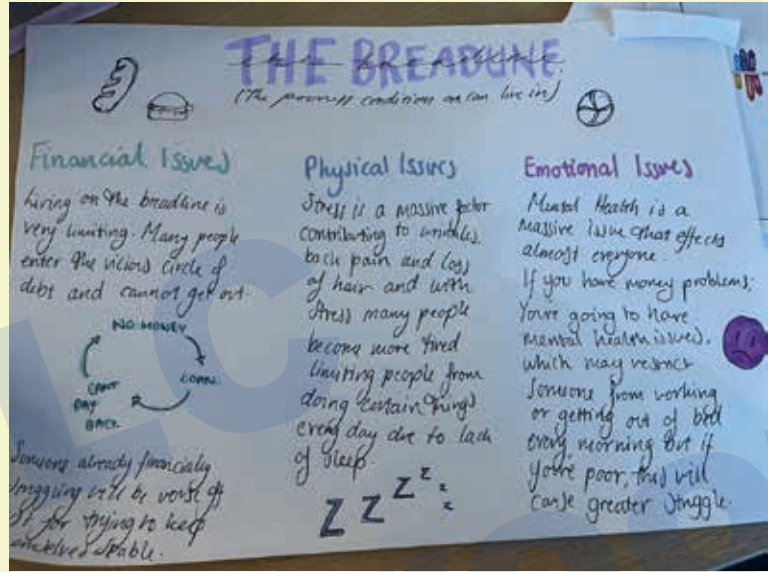 THE BREADLINE
(The poorness conditions on can live in)
Financial Issues
Living on the breadline is
very limiting. Many people
enter the vicious circle of
debt and cannot get out.
NO MONEY
LOANS
CANT
PAY
BACK
Someone already financially
struggling will be worse off
for trying to keep
stable.
Physical Issues
Stress is a massive factor
contributing to wrinkles,
back pain and loss
of hair and with
stress many people
become more tired
limiting people from
doing certain things
every day due to lack
of sleep
Z Z Z z z z
Emotional Issues
Mental Health is a
massive issue that effects
almost everyone.
If you have money problems,
You're going to have
mental health issues.
which may restrict
Someone from working
or getting out of bed
every morning but if
you're poor, this will
cause greater struggle.